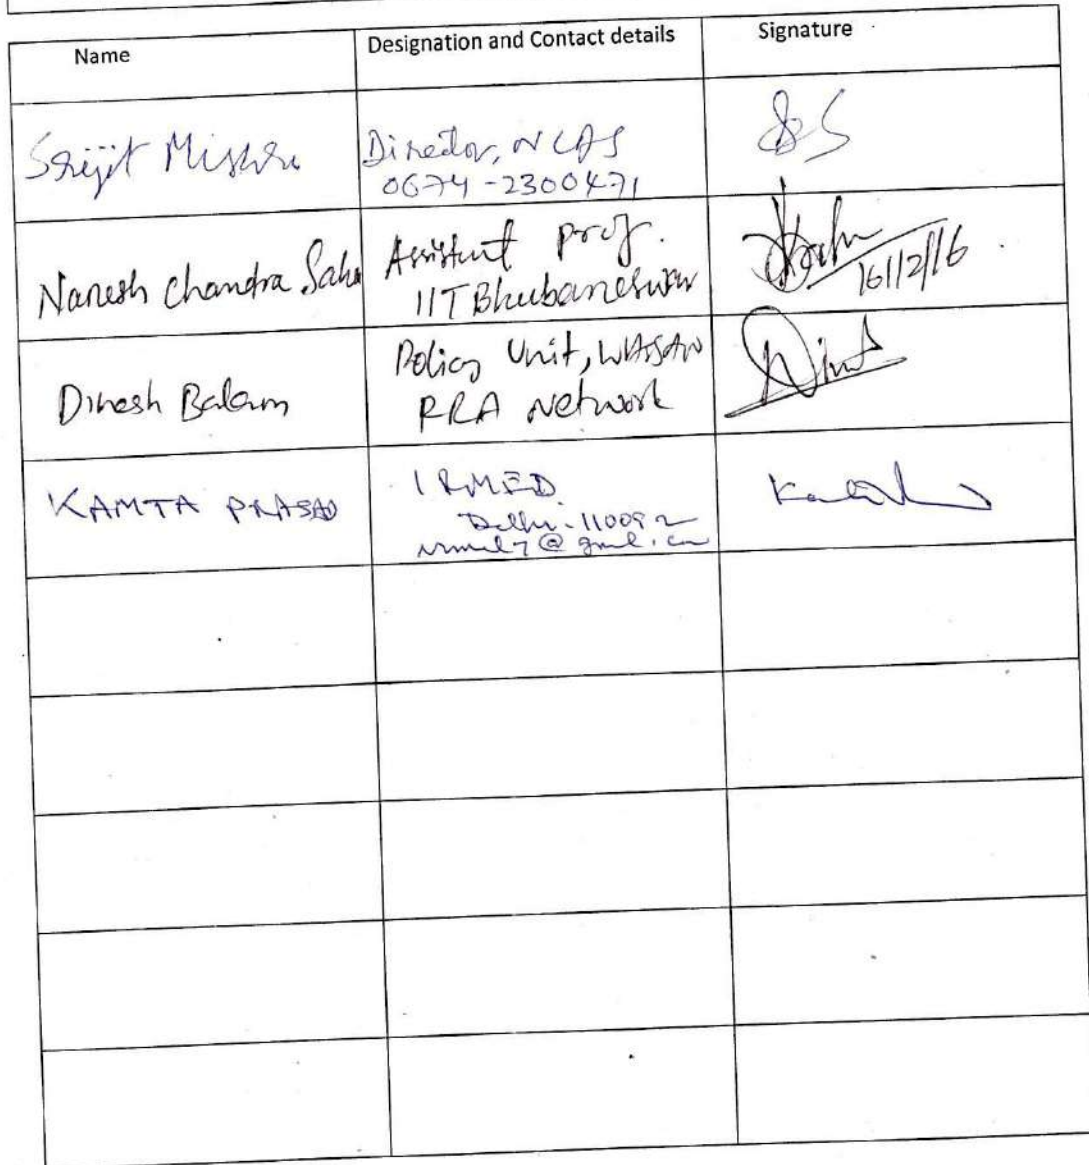 Name Designation and Contact details Signature
Srijit Mishra Director, NCDS
0674-2300471
Naresh Chandra Sahu Assistant Prof.
IIT Bhubaneswar
16/12/16
Dinesh Balam Policy Unit, WASSAN
RRA Network
KAMTA PRASAD IRMED
Delhi-110092
@gmail.com